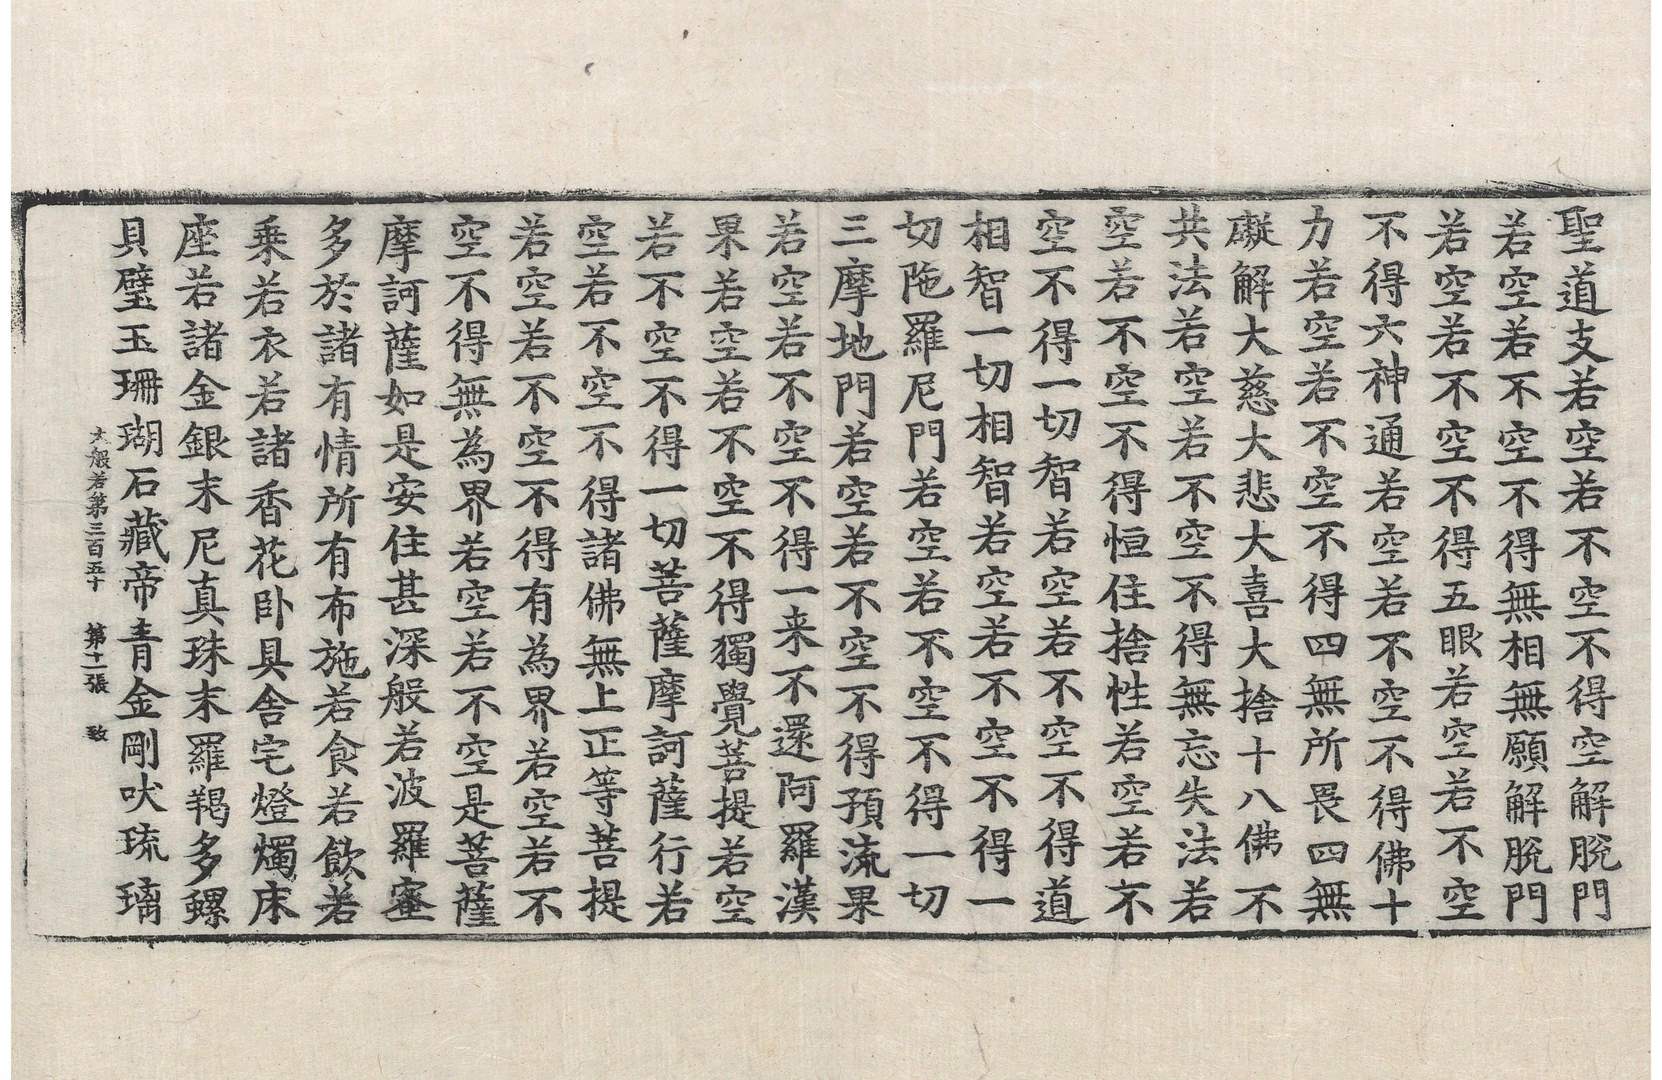 聖道支若空若不空不得空解脫門
若空若不空不得無相無願解脫門
若空若不空不得五眼若空若不空
不得六神通若空若不空不得佛十
力若空若不空不得四無所畏四無
礙解大慈大悲大喜大捨十八佛不
共法若空若不空不得無忘失法若
空若不空不得恒住捨性若空若不
空不得一切智若空若不空不得道
相智一切相智若空若不空不得一
切陁羅尼門若空若不空不得一切
三摩地門若空若不空不得預流果
若空若不空不得一来不還阿羅漢
果若空若不空不得獨覺菩提若空
若不空不得一切菩薩摩訶薩行若
空若不空不得諸佛無上正等菩提
若空若不空不得有為界若空若不
空不得無為界若空若不空是菩薩
摩訶薩如是安住甚深般若波羅蜜
多於諸有情所有布施若食若飲若
乗若衣若諸香花卧具舎宅燈燭床
座若諸金銀末尼真珠末羅羯多螺
貝璧玉珊瑚石藏帝青金剛吠琉璃
大般若第三百五十 第十一張 致